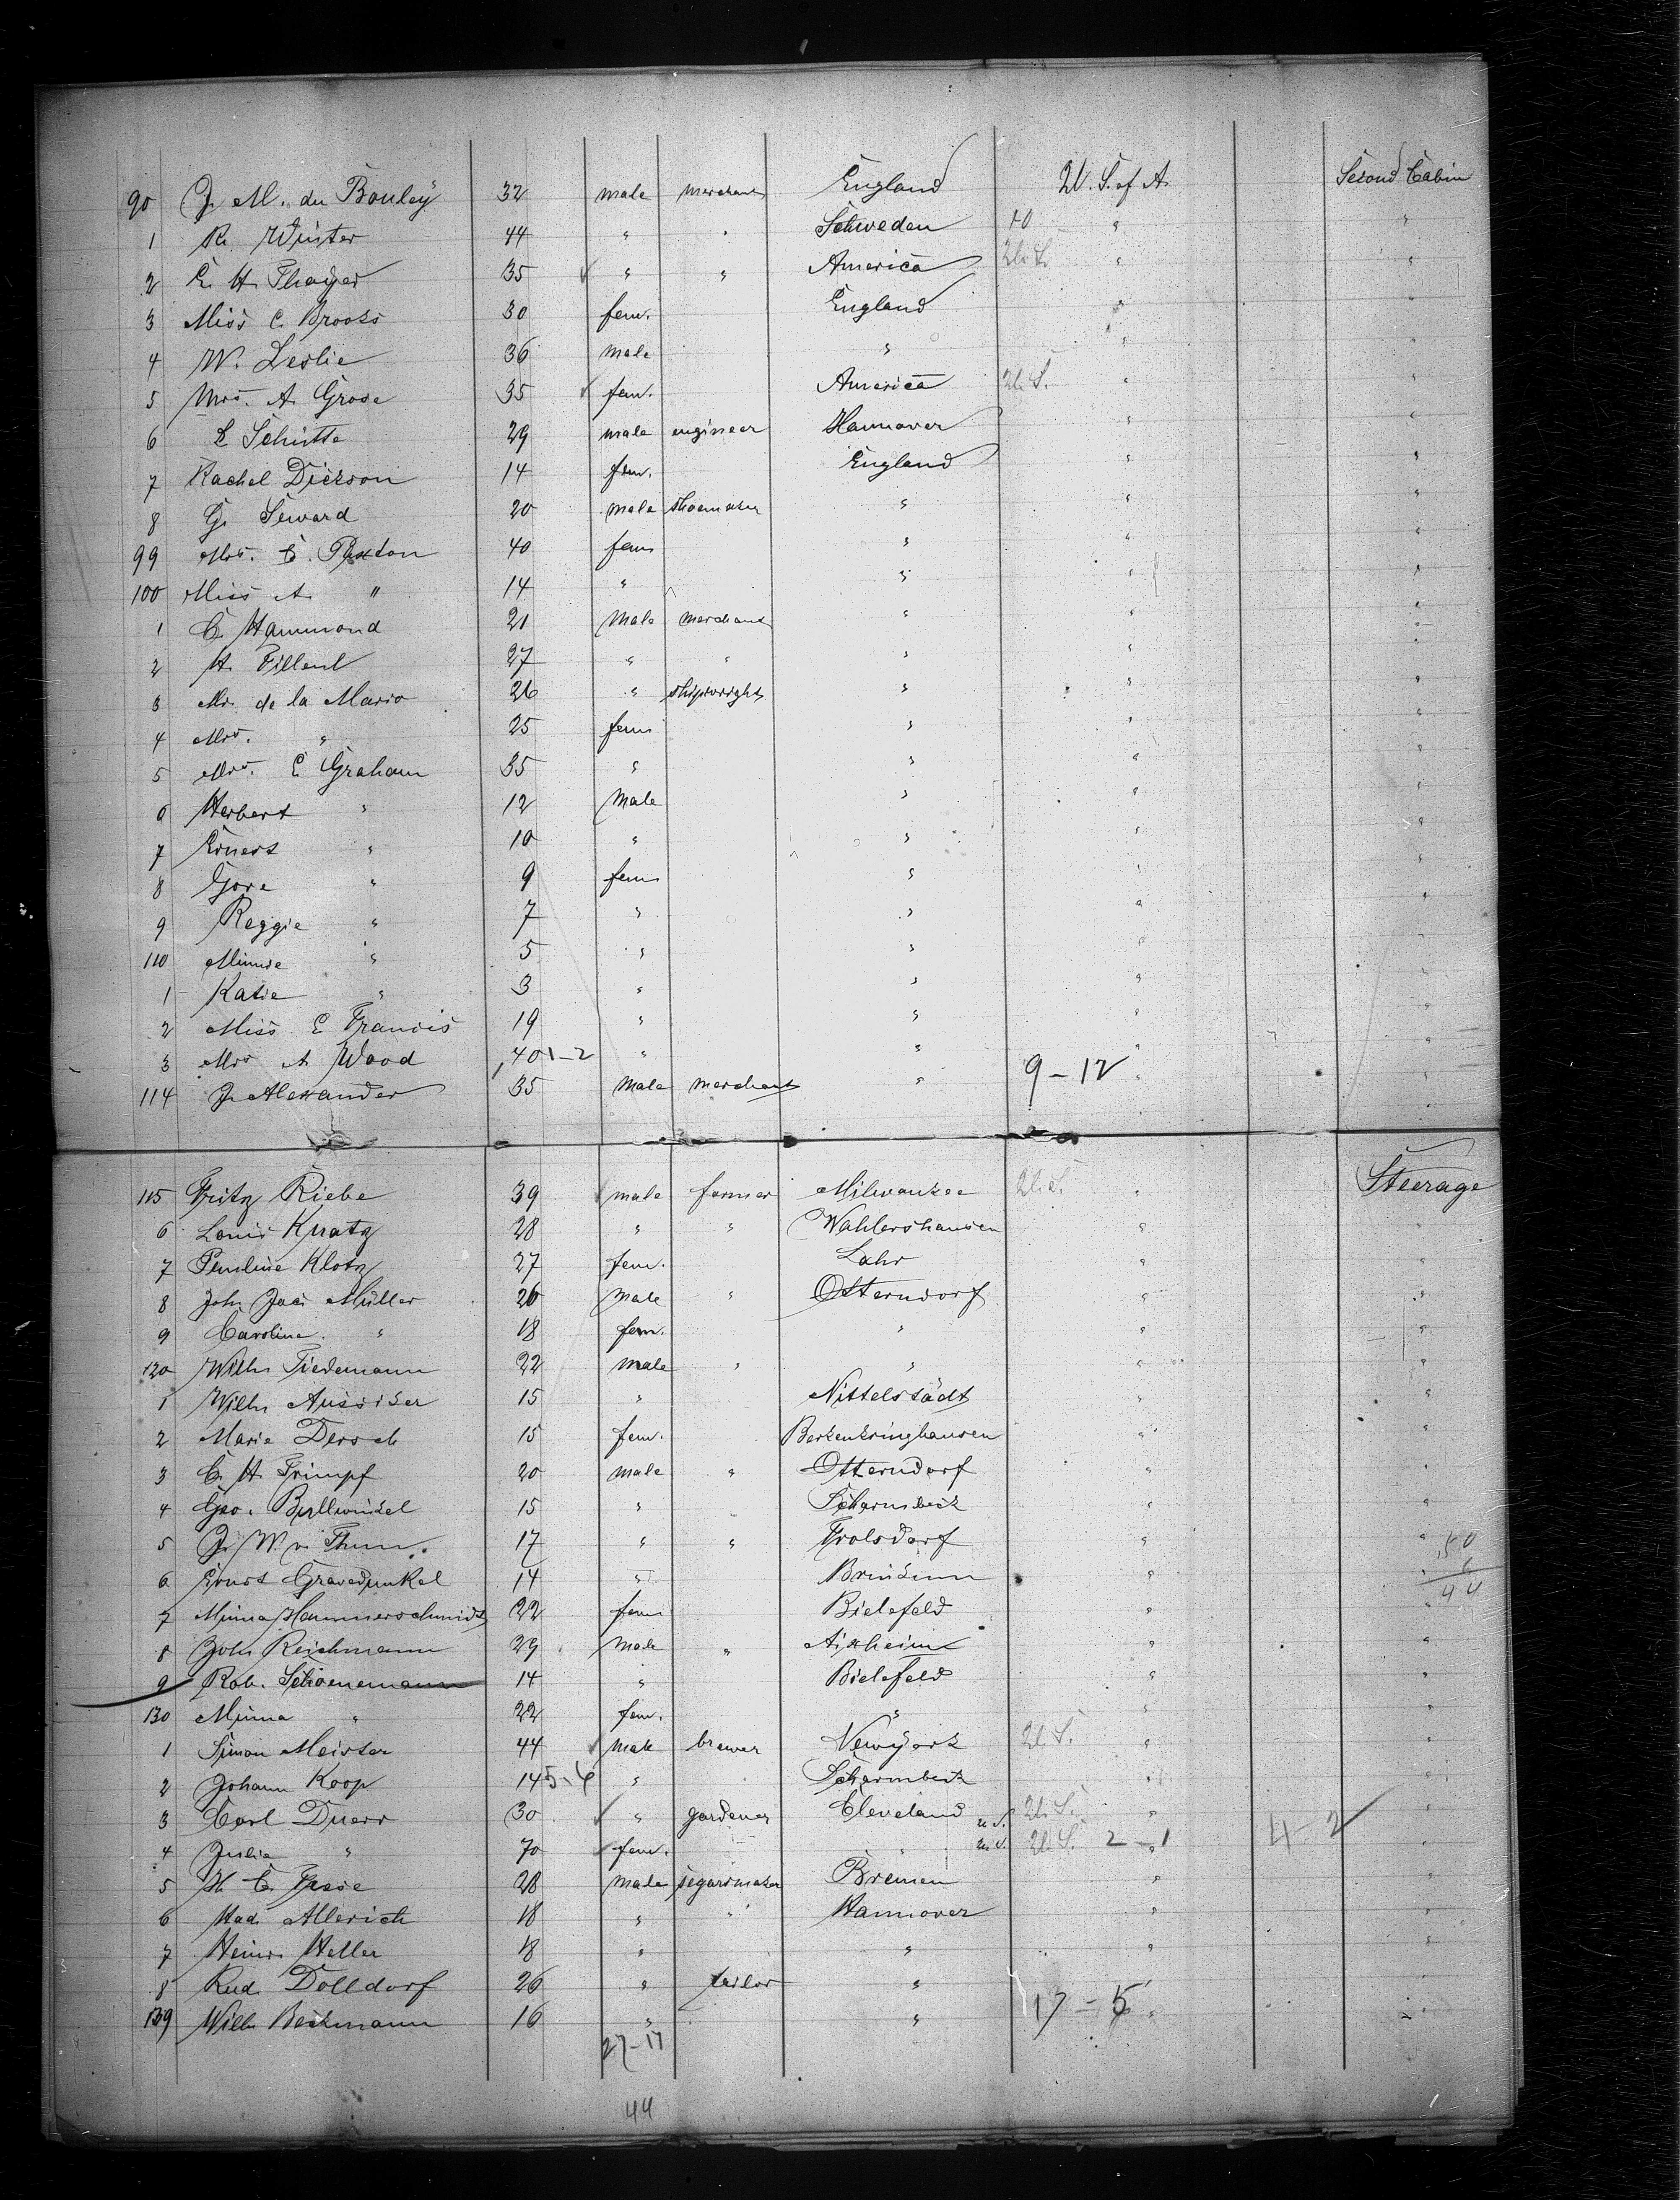 90 J. M. du Bouley 32 male merchant England U. S. of A. Second Cabin
1 R. Winter 44 " " Schweden 10 " "
2 E. H. Thayer 35 ✓ " " America U. S. " "
3 Miss C. Brooks 30 fem. England " "
4 W. Leslie 36 male " " "
5 Mrs. A. Grose 35 ✓ fem. America U. S. " "
6 L Schütte 29 male engineer Hannover " "
7 Rachel Dickson 14 fem. England " "
8 G. Seward 20 male shoemaker " " "
99 Mrs. C. Paxton 40 fem " " "
100 Miss A. " 14 " " " "
1 C. Hammond 21 male merchant " " "
2 H. 27 " " " " "
3 Mr. de la Mario 26 " shipwright " " "
4 Mrs. " 25 fem " " "
5 Mrs. E Graham 35 " " " "
6 Herbert " 12 male " " "
7 Ernest " 10 " " " "
8 Gore " 9 fem " " "
9 Reggie " 7 " " " "
110 Minnie " 5 " " " "
1 Katie " 3 " " " "
2 Miss E Francis 19 " " " "
3 Mrs A Wood 40 1-2 " " " "
114 J. Alexander 35 male merchant " 9-12 " "
115 Fritz Riebe 39 male farmer Milwaukee U. S. " Steerage
6 Louis Kratz 28 " " Wahlershausen " "
7 Pauline Klotz 27 fem. Lahr " "
8 Joh. Jac. Müller 26 male " Otterndorf " "
9 Caroline " 18 fem. " " "
120 Wilh. Tiedemann 22 male " " " "
1 Wilh. 15 " Nittelstädt " "
2 Marie Dersch 15 fem. " "
3 C. H. Trimpf 20 male " Otterndorf " "
4 Geo. Bullwinkel 15 " Scharmbeck " "
5 J. W. v. Thun 17 " " Frolsdorf " "
6 Ernst Gravedunkel 14 " Brinkum " "
7 Minna Hammerschmidt 22 fem Bielefeld " "
8 Joh. Reichmann 29 male " Aixheim " "
9 Rob. Schoenemann 14 " Bielefeld " "
130 Minna " 22 fem. " " "
1 Simon Meister 44 ✓ male brewer Newyork U. S. " "
2 Johann Koop 14 5-4 " Scharmbeck " "
3 Carl Duerr 30 ✓ " gardener Cleveland U. S. U. S. " "
4 Julie " 70 ✓ fem. " U. S. U. S. 2-1 " 4-2 "
5 H. C. 28 male segarmaker Bremen " "
6 Allerich 18 " " Hannover " "
7 Heinr. Heller 18 " " " "
8 Rud. Dolldorf 26 " tailor " " "
139 Wilh. Beckmann 16 " " 17-5 " "
50
6
44
27-17
44